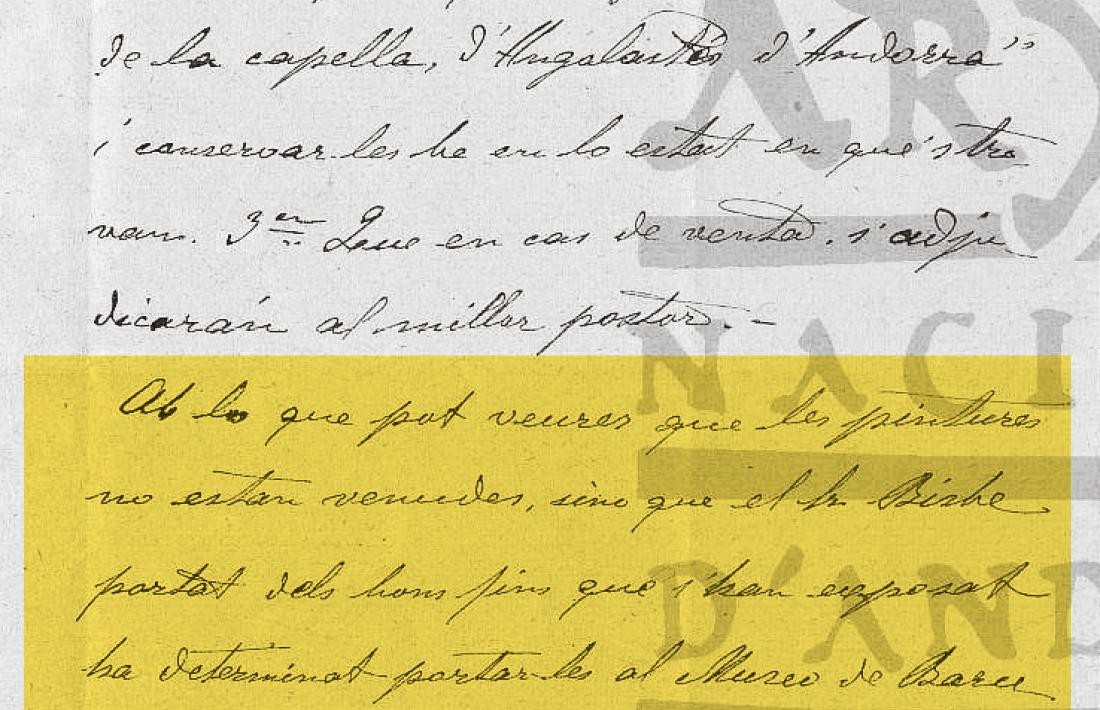 de la capella, d'Angolasters d'Andorra"
i conservar-les be en lo estat en que's tro
van. 3er Que en cas de venta, s'adju
dicarán al millor postor.-
Ab lo que pot veures que les pintures
no estan venudes, sino que el Sr Bisbe
portat dels bons fins que s'han exposat
ha determinat portar-les al Museo de Barce
ARX
NACI
D'AND